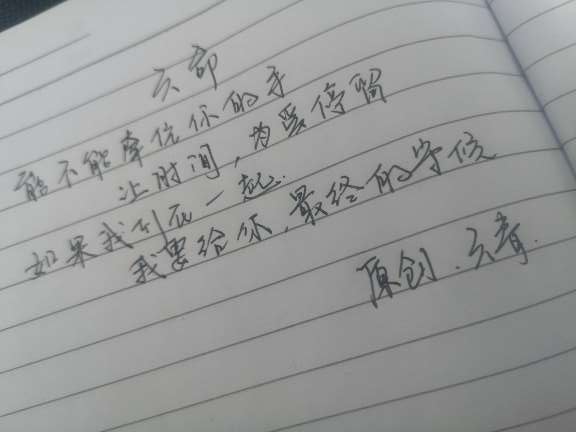 能不能牵住你的手
让时间，为爱停留
如果我们在一起.
我要给你，最终的守候
原创.云青.